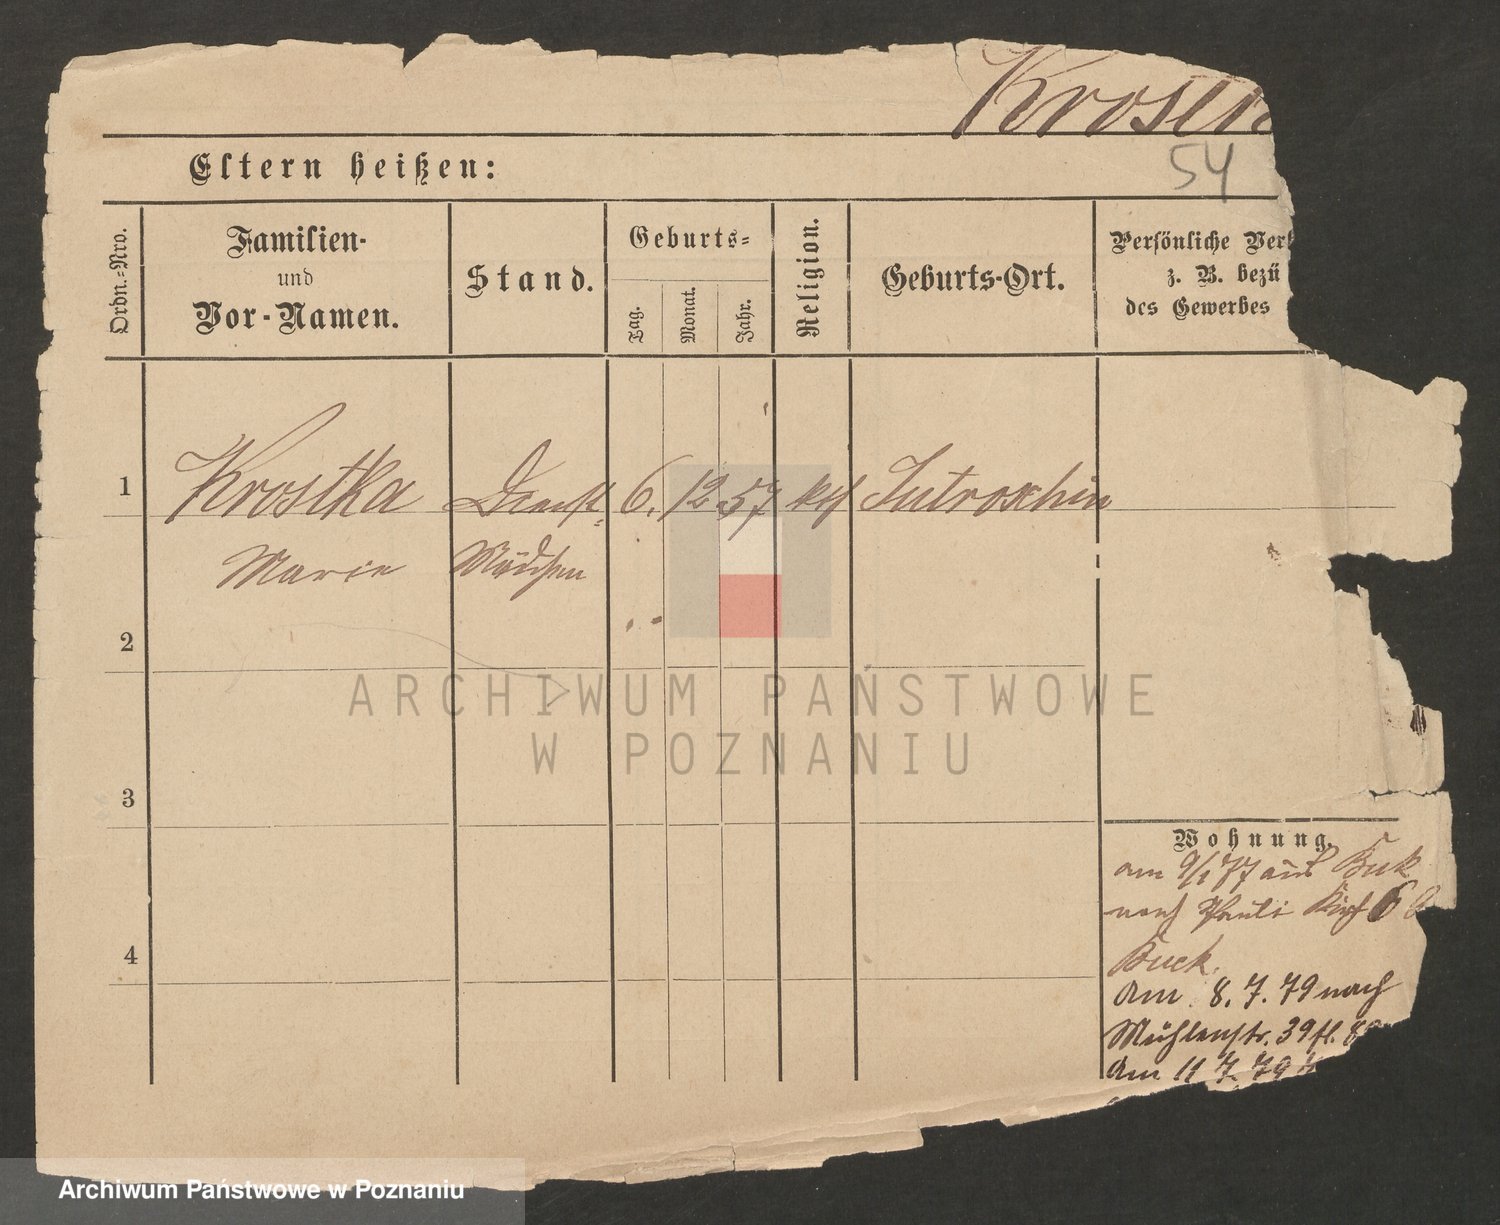 54
Eltern heißen:
Ordn.-Nro.
Familien-
und
Vor-Namen.
Stand.
Geburts-
Tag.
Monat.
Jahr.
Religion.
Geburts-Ort.
Persönliche
z. B.
des Gewerbes
1
Krostka
Marie
Dienst-
Mädchen
6.
12
57
kth
Jutroschin
2
3
4
Wohnung.
am 9/1 77 aus Buk
nach Pauli Kirch 6
Buck.
Am 8. 7. 79 nach
Mühlenstr. 39
Am 11 7. 79
ARCHIWUM PAŃSTWOWE
W POZNANIU
Archiwum Państwowe w Poznaniu